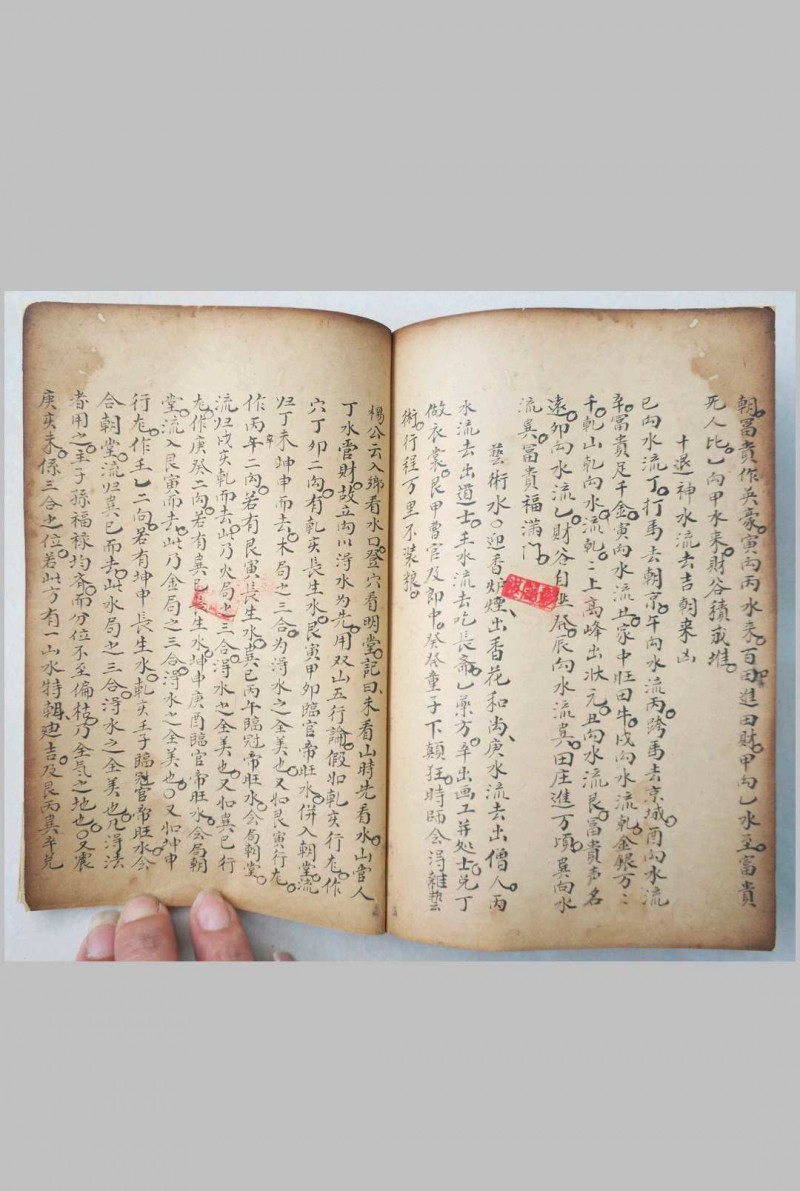 朝。冨貴作英豪。寅向丙水来。百田進田財。甲向乙水至。富貴
死人比。乙向甲水来。財谷積成堆。
十退神水流去吉朝来凶
巳向水流丁。打馬去朝京。午向水流丙。跨馬去京城。酉向水流
辛。冨貴足千金。寅向水流丑。家中旺田牛。戌向水流乾。金銀万々
千。乾山乾向水流乾。乾上高峰出狀元。丑向水流艮。冨貴声名
遠。卯向水流乙。財谷自興發。辰向水流巽。田庄進万頃。巽向水
流巽。冨貴福滿门。
藝術水。迎香炉煙。出香花和尚。庚水流去出僧人。丙
水流去出道士。壬水流去吃長斋。乙藥方。辛出画工并処士。兑丁
做衣裳。艮甲曹官及郎中。癸癸童子下顛狂。時師会淂雜藝
術。行程万里不裝粮。
楊公云入鄉看水口。登穴看明堂。記曰未看山時先看水。山管人
丁水管財。故立向以淂水为先。用双山五行論。假如乾亥行龙。作
穴丁卯二向。有乾亥長生水。艮寅甲卯臨官帝旺水。併入朝堂。流
归丁未坤申而去。木局之三合为淂水之全美也。又如艮寅行龙。
作丙辛二向。若有艮寅長生水。巽巳丙午臨冠帝旺水。会局朝堂。
流归戌亥乾而去。此乃火局之三合淂水之全美也。又如巽巳行
龙。作庚癸二向。若有巽巳長生水。坤申庚酉臨官帝旺水。会局朝
堂。流入艮寅而去。此乃金局之三合。淂水之全美也。又如坤申
行龙。作壬乙二向。若有坤申長生水。乾亥壬子臨冠官帝旺水。会
合朝堂。流归巽巳而去。此水局之三合。淂水之全美也。凡淂法
者用之。主子孫福禄均斉。而分位不至偏枝。乃全氣之地也。又震
庚亥未。係三合之位。若此方有一山水特朝。廸吉。及艮丙巽辛兑